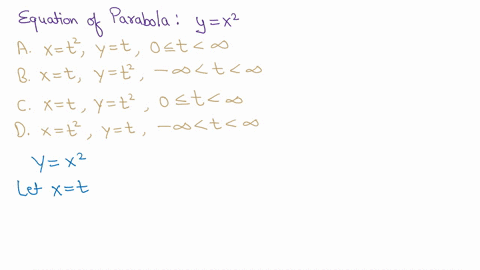 Equation of Parabola: y=x²
A. x=t², y=t, 0≤t<∞
B. x=t, y=t², -∞<t<∞
C. x=t, y=t², 0≤t<∞
D. x=t², y=t, -∞<t<∞
y=x²
Let x=t